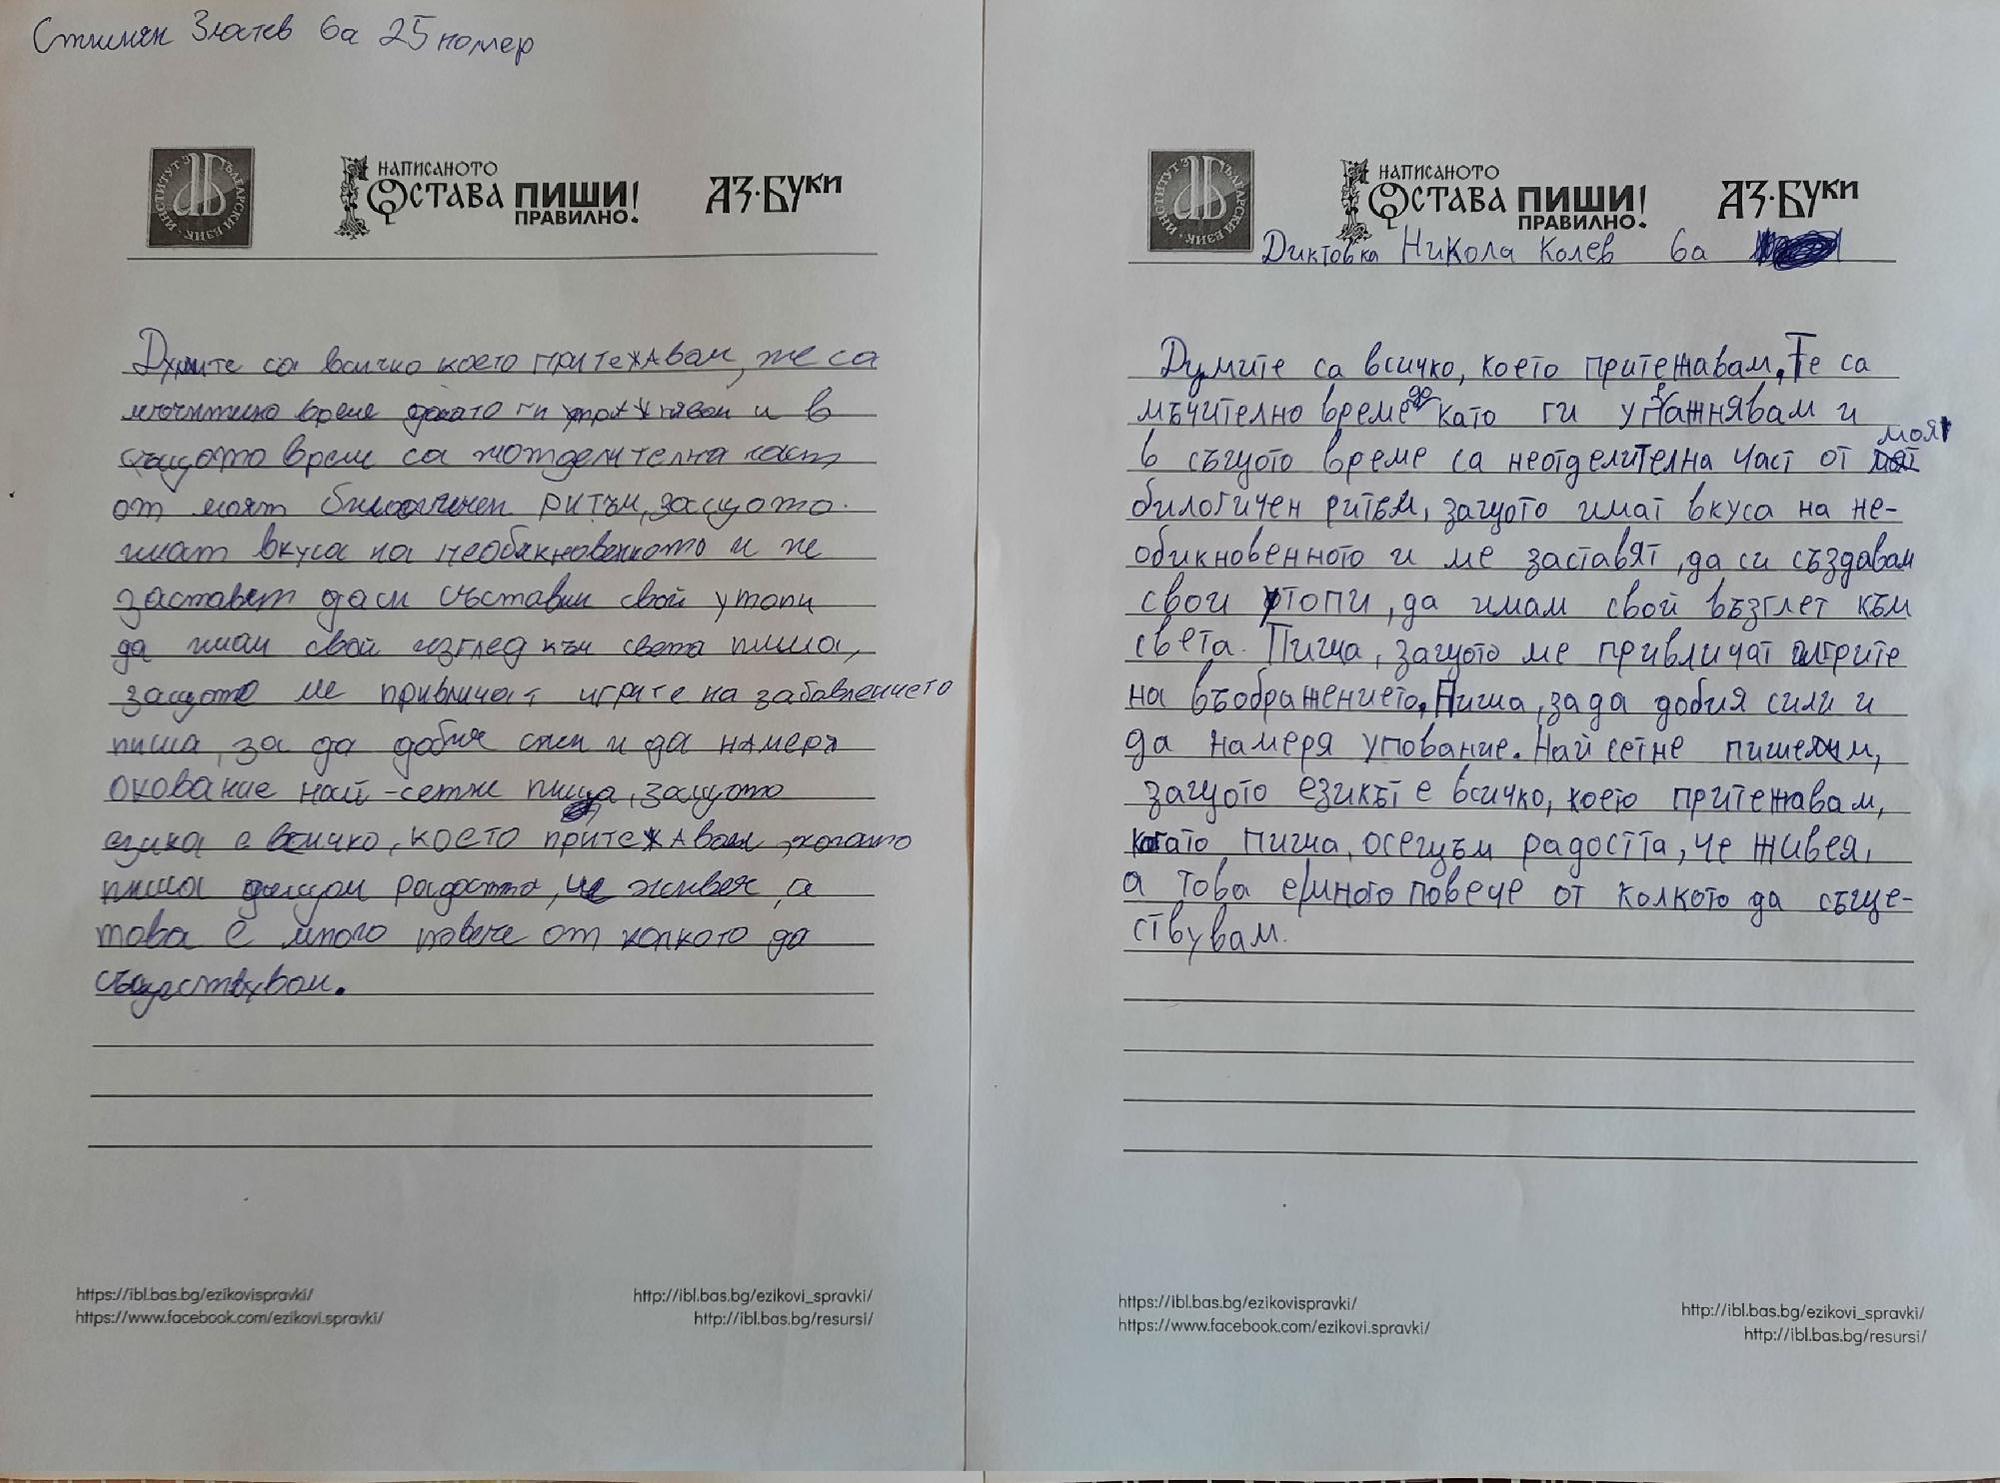 Стилиян Златев 6а 25 номер
НАПИСАНОТО
ОСТАВА ПИШИ!
ПРАВИЛНО!
АЗ·БУКИ
Думите са всичко което притежавам, же са
време докато ги упражнявам и в
същото време са
от моят ритъм, защото
имат вкуса на необикновенното и же
заставят да си съставим свой утопи
да имам свой изглед към света пиша,
защото ме привличат игрите на забавлението
пиша, за да добия сили и да намеря
окование най-сетне пиша, защото
езика е всичко, което притежавам, когато
пиша радостта, че живея, а
това е много повече от колкото да
съществувам.
https://ibl.bas.bg/ezikovispravki/
https://www.facebook.com/ezikovi.spravki/
http://ibl.bas.bg/ezikovi_spravki/
http://ibl.bas.bg/resursi/
НАПИСАНОТО
ОСТАВА ПИШИ!
ПРАВИЛНО!
АЗ·БУКИ
Диктовка Никола Колев 6а
Думите са всичко, което притежавам. Те са
мъчително време докато ги упражнявам и
в същото време са неотделителна част от моя
билогичен ритъм, защото имат вкуса на не-
обикновенното и ме заставят, да си създавам
свои утопи, да имам свой възглет към
света. Пиша, защото ме привличат игрите
на въображението. Пиша, за да добия сили и
да намеря упование. Най сетне
защото езикът е всичко, което притежавам,
когато пиша, осещъм радостта, че живея,
а това е много повече от колкото да съще-
ствувам.
https://ibl.bas.bg/ezikovispravki/
https://www.facebook.com/ezikovi.spravki/
http://ibl.bas.bg/ezikovi_spravki/
http://ibl.bas.bg/resursi/